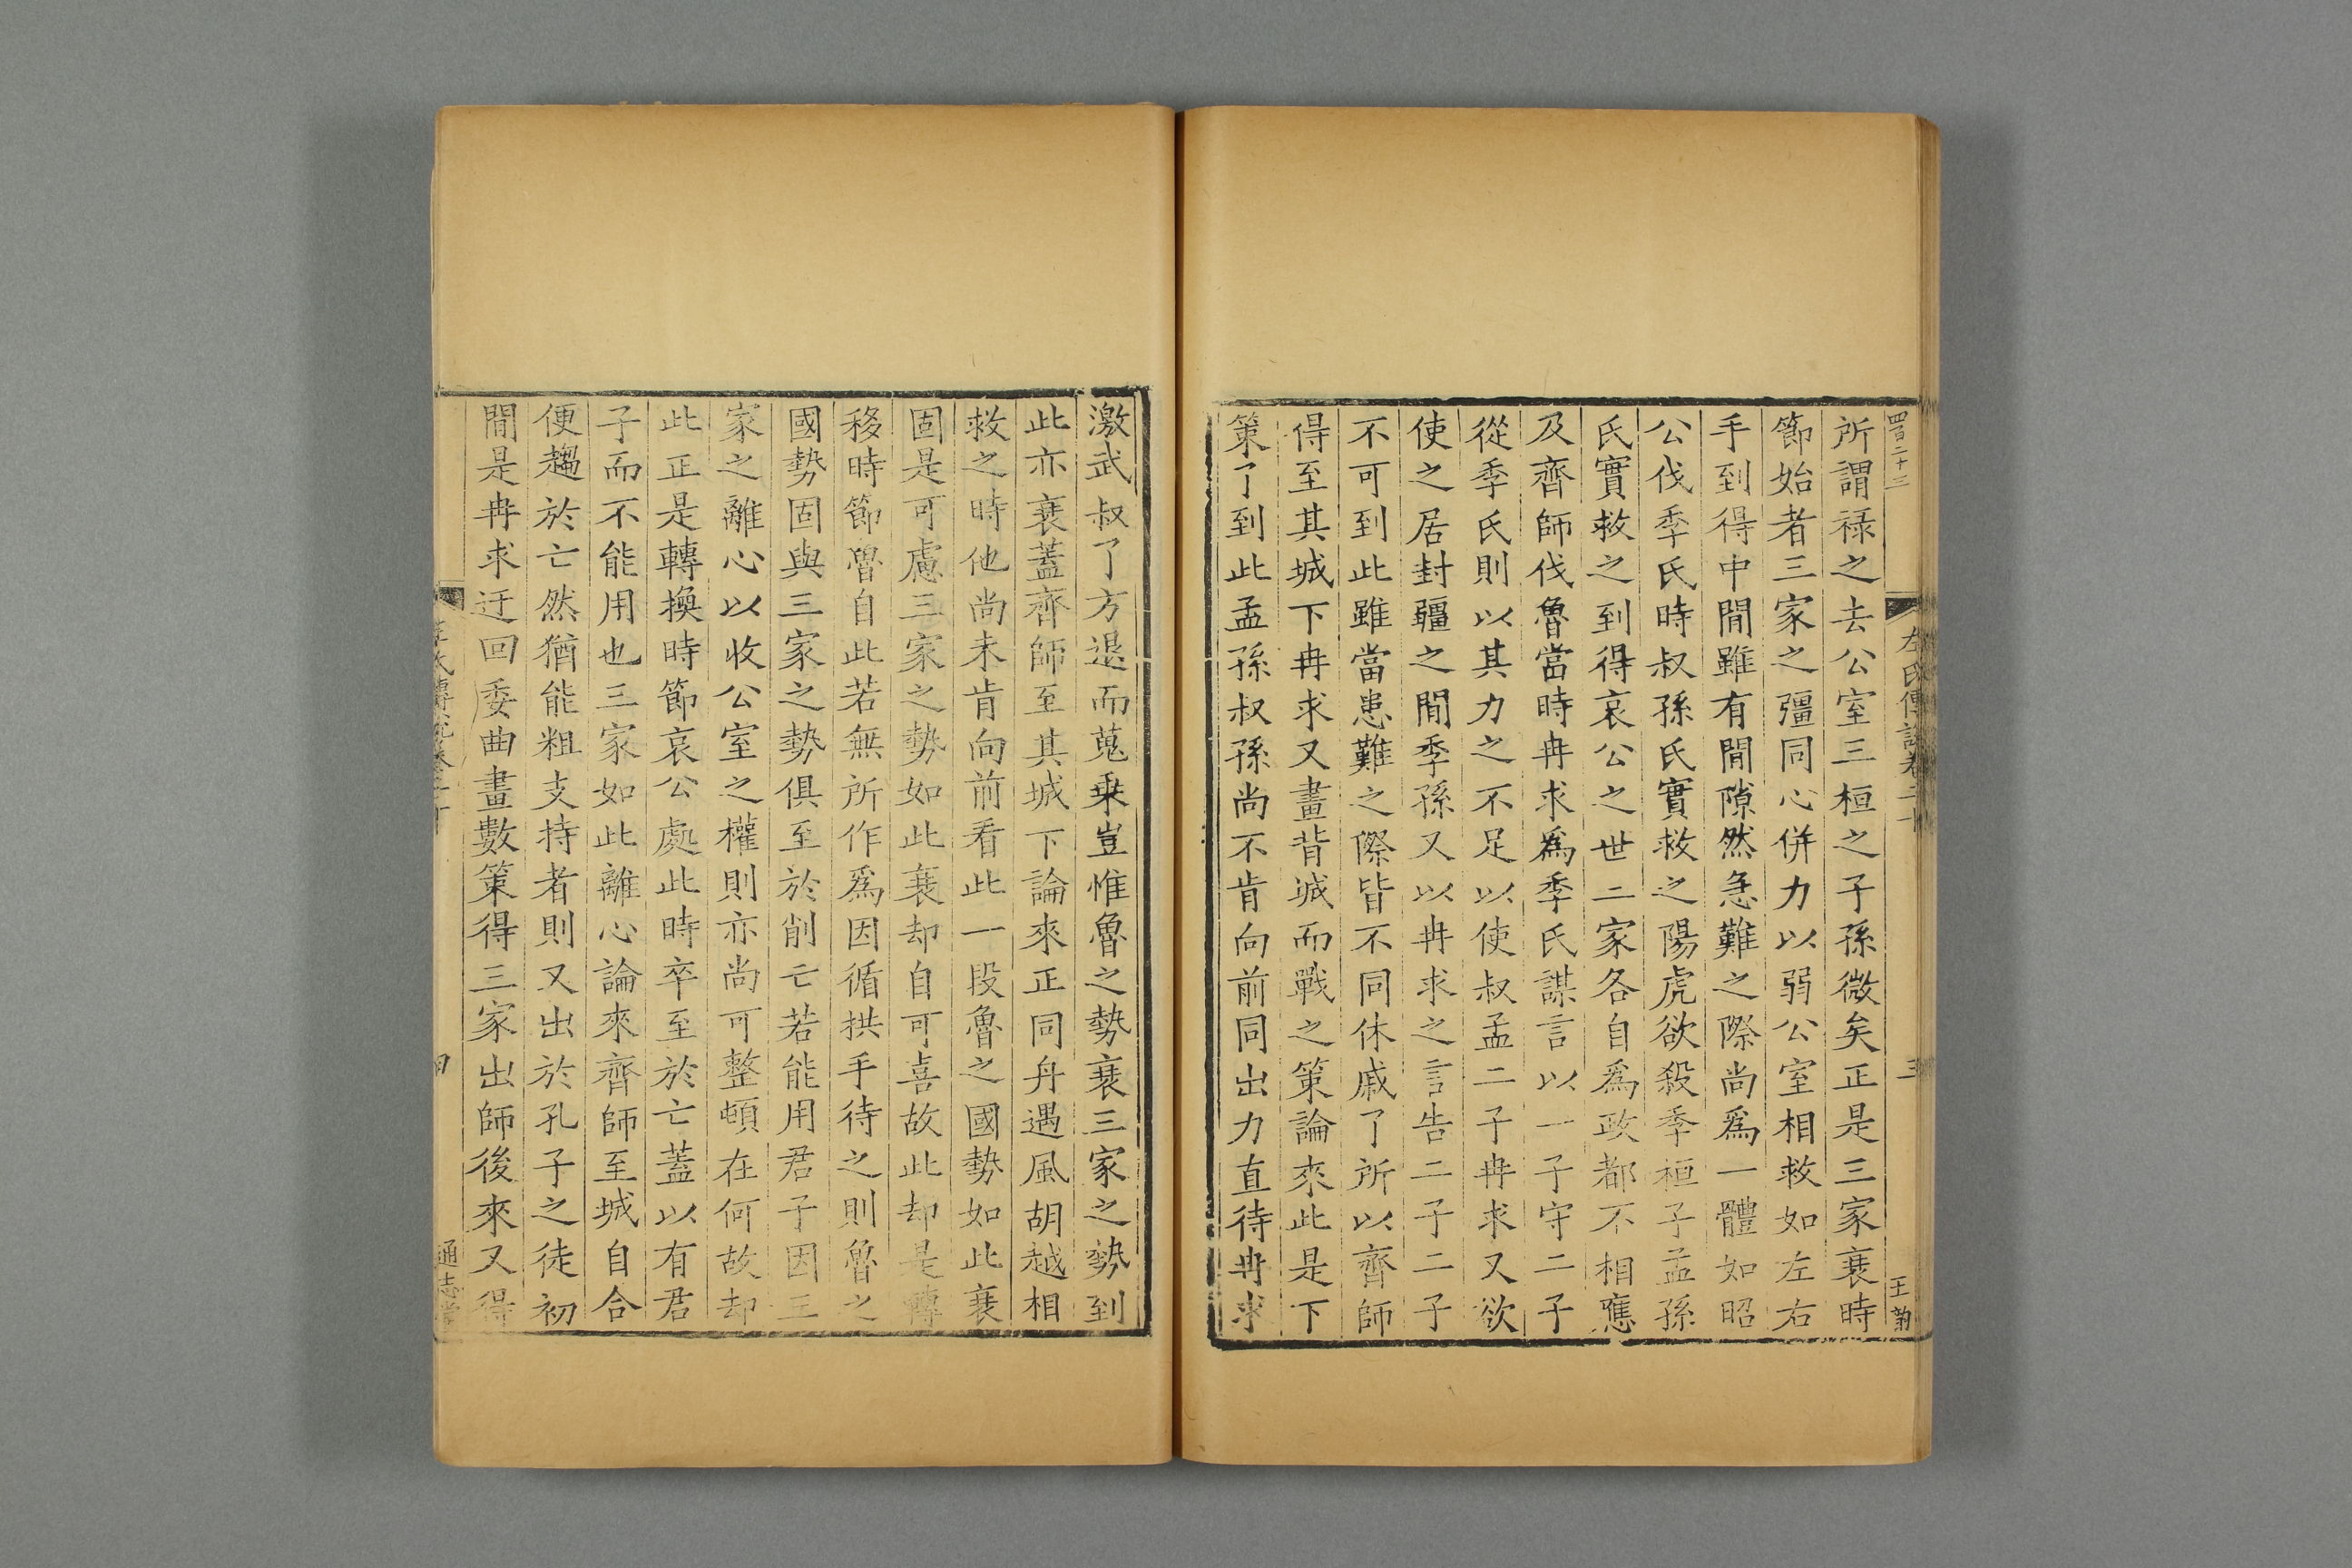 四百二十三
左氏傳說卷二十
三
王菊
所謂祿之去公室三桓之子孫微矣正是三家衰時
節始者三家之彊同心併力以弱公室相救如左右
手到得中間雖有間隙然急難之際尚爲一體如昭
公伐季氏時叔孫氏實救之陽虎欲殺季桓子孟孫
氏實救之到得哀公之世二家各自爲政都不相應
及齊師伐魯當時冉求爲季氏謀言以一子守二子
從季氏則以其力之不足以使叔孟二子冉求又欲
使之居封疆之間季孫又以冉求之言告二子二子
不可到此雖當患難之際皆不同休戚了所以齊師
得至其城下冉求又畫背城而戰之策論來此是下
策了到此孟孫叔孫尚不肯向前同出力直待冉求
激武叔了方退而蒐乗豈惟魯之勢衰三家之勢到
此亦衰蓋齊師至其城下論來正同舟遇風胡越相
救之時他尚未肯向前看此一段魯之國勢如此衰
固是可慮三家之勢如此衰却自可喜故此却是轉
移時節魯自此若無所作爲因循拱手待之則魯之
國勢固與三家之勢俱至於削亡若能用君子因三
家之離心以收公室之權則亦尚可整頓在何故却
此正是轉換時節哀公處此時卒至於亡蓋以有君
子而不能用也三家如此離心論來齊師至城自合
便趨於亡然猶能粗支持者則又出於孔子之徒初
間是冉求迂回委曲畫數策得三家出師後來又得
通志堂